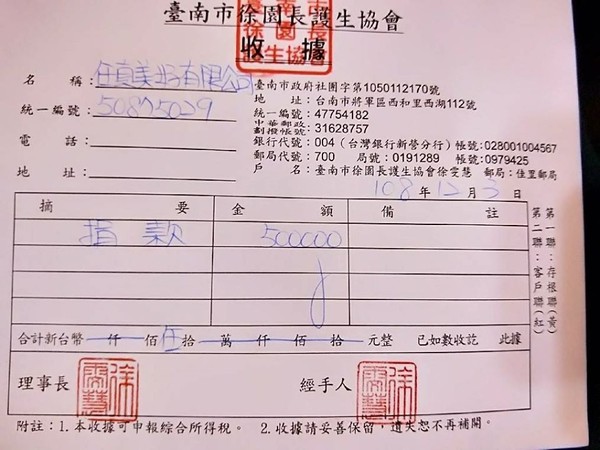 臺南市徐園長護生協會
收 據
名 稱：任真美好有限公司
統一編號：50875029
電 話：
地 址：
臺南市政府社團字第1050112170號
地 址：台南市將軍區西和里西湖112號
統一編號：47754182
中華郵政劃撥帳號：31628757
銀行代號：004（台灣銀行新營分行）帳號:028001004567
郵局代號：700 局號：0191289 帳號:0979425
戶 名：臺南市徐園長護生協會徐雯慧 郵局:佳里郵局
108年12月3日
摘 要 金 額 備 註
捐 款 500000
合計新台幣 仟 佰 伍拾 萬 仟 佰 拾 元整 已如數收訖 此據
理事長 經手人
附註：1.本收據可申報綜合所得稅。 2.收據請妥善保留，遺失恕不再補開。
第一聯：存根聯(黃
第二聯：客戶聯(紅